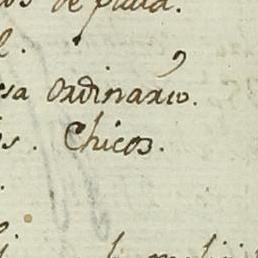 os de plata.
l.
sa ordinario.
s. Chicos.